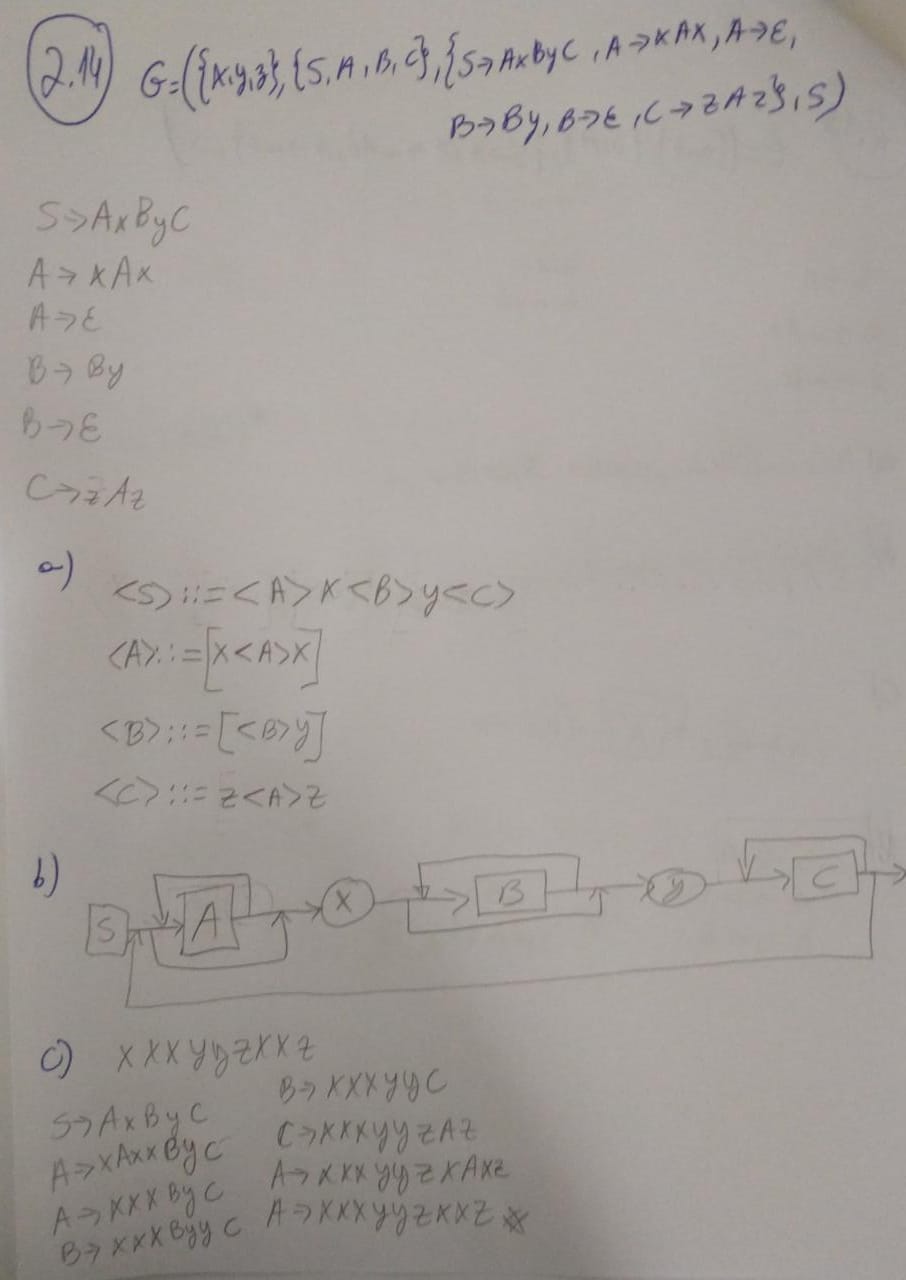 2.14 G=({x,y,z},{S,A,B,C},{S→AxByC, A→xAx, A→ε,
B→By, B→ε, C→zAz}, S)
S→AxByC
A→xAx
A→ε
B→By
B→ε
C→zAz
a)
<S>::=<A>x<B>y<C>
<A>::=[x<A>x]
<B>::=[<B>y]
<C>::=z<A>z
b)
S A x B y C
c) xxxyyzxxz
S→AxByC
A→xAxxByC
A→xxxByC
B→xxxByyC
B→xxxyyC
C→xxxyyzAz
A→xxxyyzxAxz
A→xxxyyzxxz